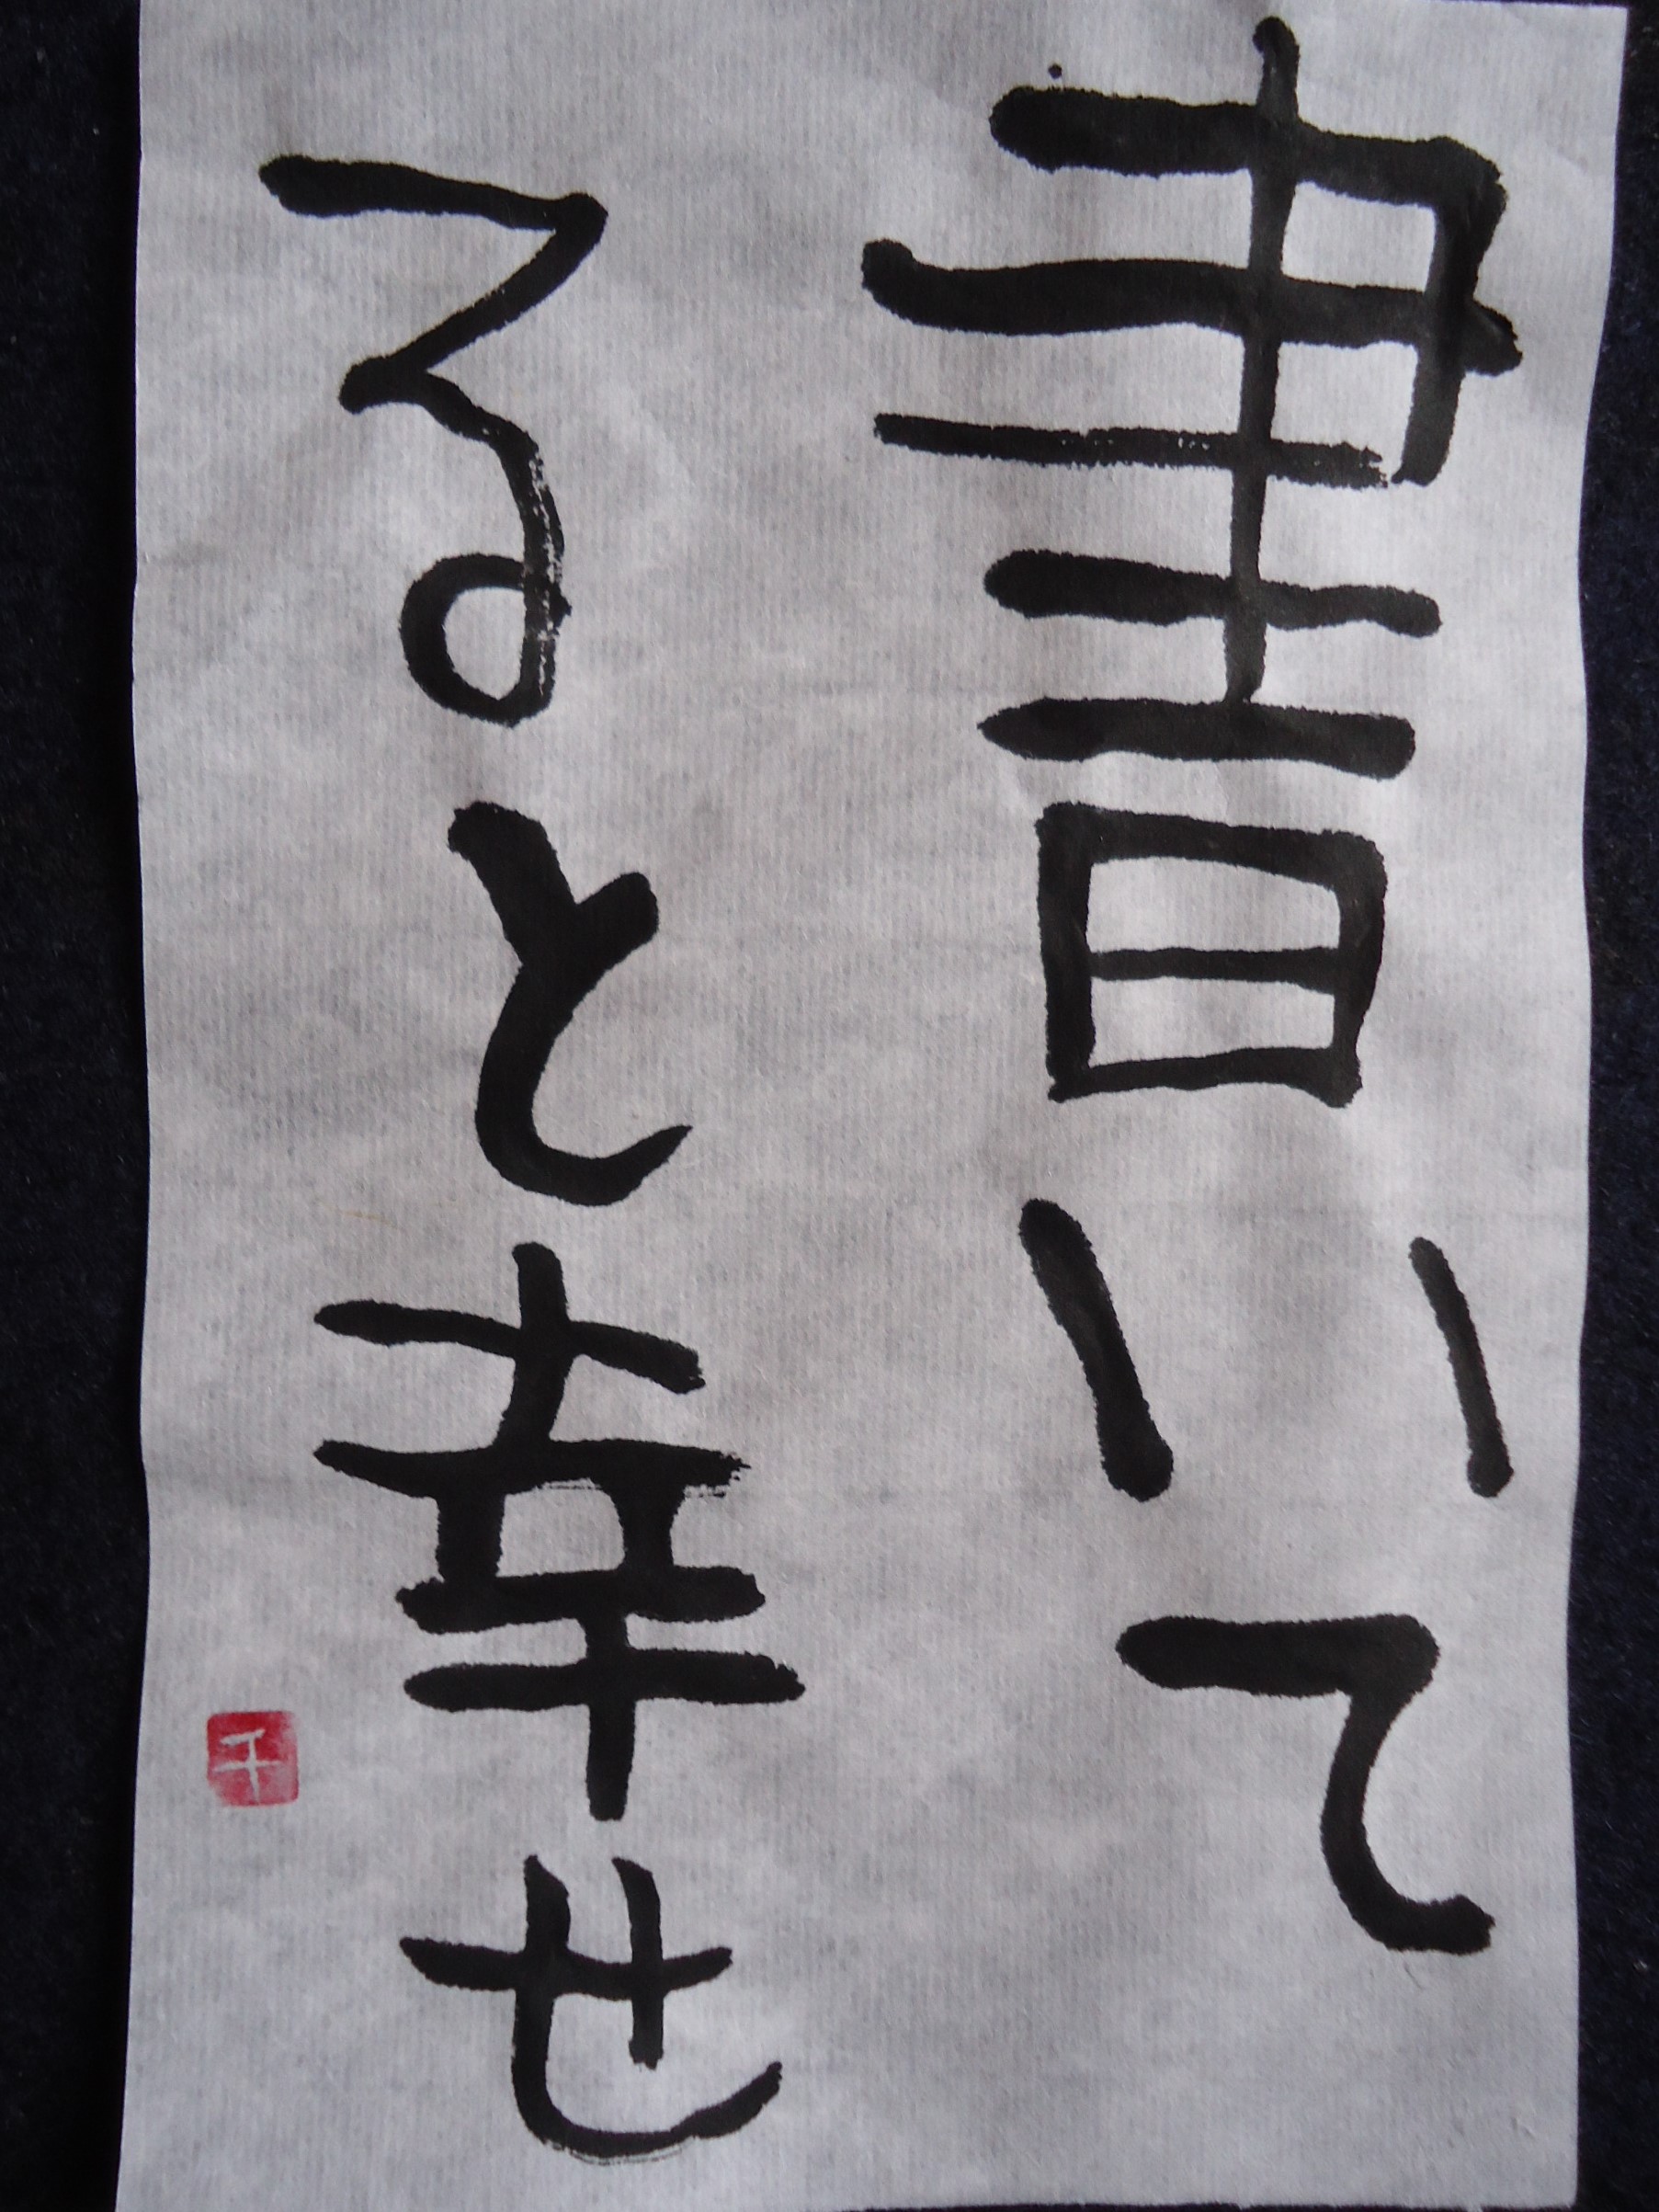 書いて
ると幸せ
千